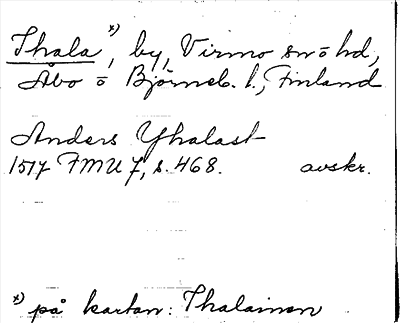 Thala *), by, Virmo sn o hd,
Åbo o Björneb. l., Finland
Anders Yhalast
1517 FMU 7, s. 468. avskr.
*) på kartan: Thalainen